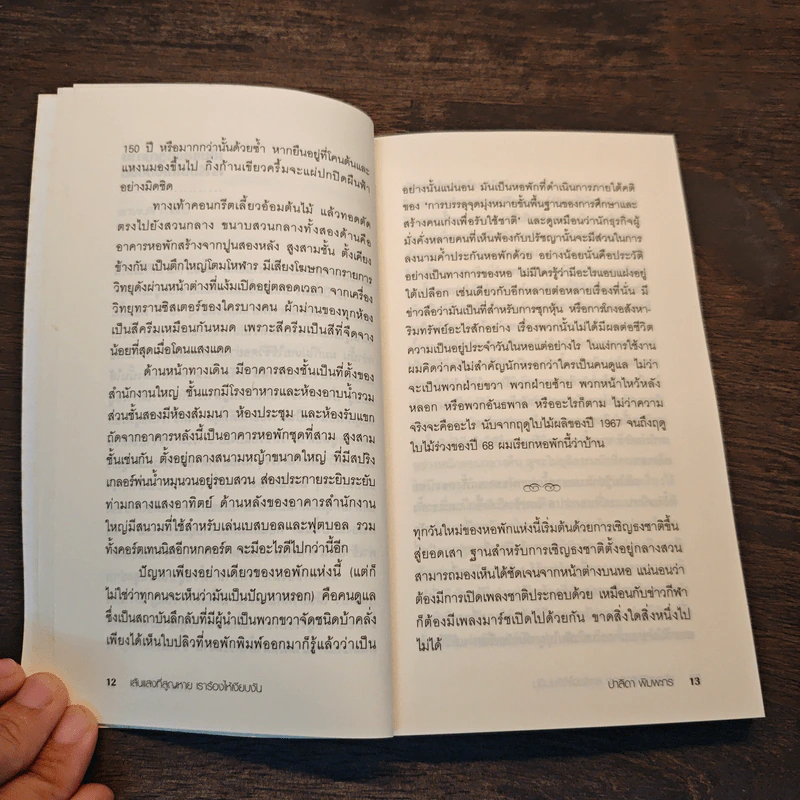 150 ปี หรือมากกว่านั้นด้วยซ้ำ หากยืนอยู่ที่โคนต้นและ
แหงนมองขึ้นไป กิ่งก้านเขียวครึ้มจะแผ่ปกปิดผืนฟ้า
อย่างมิดชิด
ทางเท้าคอนกรีตเลี้ยวอ้อมต้นไม้ แล้วทอดตัด
ตรงไปยังสวนกลาง ขนาบสวนกลางทั้งสองด้านคือ
อาคารหอพักสร้างจากปูนสองหลัง สูงสามชั้น ตั้งเคียง
ข้างกัน เป็นตึกใหญ่โตมโหฬาร มีเสียงโฆษกจากรายการ
วิทยุดังผ่านหน้าต่างที่แง้มเปิดอยู่ตลอดเวลา จากเครื่อง
วิทยุทรานซิสเตอร์ของใครบางคน ผ้าม่านของทุกห้อง
เป็นสีครีมเหมือนกันหมด เพราะสีครีมเป็นสีที่จืดจาง
น้อยที่สุดเมื่อโดนแสงแดด
ด้านหน้าทางเดิน มีอาคารสองชั้นเป็นที่ตั้งของ
สำนักงานใหญ่ ชั้นแรกมีโรงอาหารและห้องอาบน้ำรวม
ส่วนชั้นสองมีห้องสัมมนา ห้องประชุม และห้องรับแขก
ถัดจากอาคารหลังนี้เป็นอาคารหอพักชุดที่สาม สูงสาม
ชั้นเช่นกัน ตั้งอยู่กลางสนามหญ้าขนาดใหญ่ ที่มีสปริง
เกลอร์พ่นน้ำหมุนวนอยู่รอบสวน ส่องประกายระยิบระยับ
ท่ามกลางแสงอาทิตย์ ด้านหลังของอาคารสำนักงาน
ใหญ่มีสนามที่ใช้สำหรับเล่นเบสบอลและฟุตบอล รวม
ทั้งคอร์ตเทนนิสอีกหกคอร์ต จะมีอะไรดีไปกว่านี้อีก
ปัญหาเพียงอย่างเดียวของหอพักแห่งนี้ (แต่ก็
ไม่ใช่ว่าทุกคนจะเห็นว่ามันเป็นปัญหาหรอก) คือคนดูแล
ซึ่งเป็นสถาบันลึกลับที่มีผู้นำเป็นพวกขวาจัดชนิดบ้าคลั่ง
เพียงได้เห็นใบปลิวที่หอพักพิมพ์ออกมาก็รู้แล้วว่าเป็น
12 เส้นแสงที่สูญหาย เราร้องไห้เงียบงัน
อย่างนั้นแน่นอน มันเป็นหอพักที่ดำเนินการภายใต้คติ
ของ 'การบรรลุจุดมุ่งหมายขั้นพื้นฐานของการศึกษาและ
สร้างคนเก่งเพื่อรับใช้ชาติ' และดูเหมือนว่านักธุรกิจผู้
มั่งคั่งหลายคนที่เห็นพ้องกับปรัชญานั้นจะมีส่วนในการ
ลงนามค้ำประกันหอพักด้วย อย่างน้อยนั่นคือประวัติ
อย่างเป็นทางการของหอ ไม่มีใครรู้ว่ามีอะไรแอบแฝงอยู่
ใต้เปลือก เช่นเดียวกับอีกหลายต่อหลายเรื่องที่นั่น มี
ข่าวลือว่ามันเป็นที่สำหรับการซุกหุ้น หรือการโกงอสังหา-
ริมทรัพย์อะไรสักอย่าง เรื่องพวกนั้นไม่ได้มีผลต่อชีวิต
ความเป็นอยู่ประจำวันในหอแต่อย่างไร ในแง่การใช้งาน
ผมคิดว่าคงไม่สำคัญนักหรอกว่าใครเป็นคนดูแล ไม่ว่า
จะเป็นพวกฝ่ายขวา พวกฝ่ายซ้าย พวกหน้าไหว้หลัง
หลอก หรือพวกอันธพาล หรืออะไรก็ตาม ไม่ว่าความ
จริงจะคืออะไร นับจากฤดูใบไม้ผลิของปี 1967 จนถึงฤดู
ใบไม้ร่วงของปี 68 ผมเรียกหอพักนี้ว่าบ้าน
ทุกวันใหม่ของหอพักแห่งนี้เริ่มต้นด้วยการเชิญธงชาติขึ้น
สู่ยอดเสา ฐานสำหรับการเชิญธงชาติตั้งอยู่กลางสวน
สามารถมองเห็นได้ชัดเจนจากหน้าต่างบนหอ แน่นอนว่า
ต้องมีการเปิดเพลงชาติประกอบด้วย เหมือนกับข่าวกีฬา
ก็ต้องมีเพลงมาร์ชเปิดไปด้วยกัน ขาดสิ่งใดสิ่งหนึ่งไป
ไม่ได้
ปาลิดา พิมพะกร 13